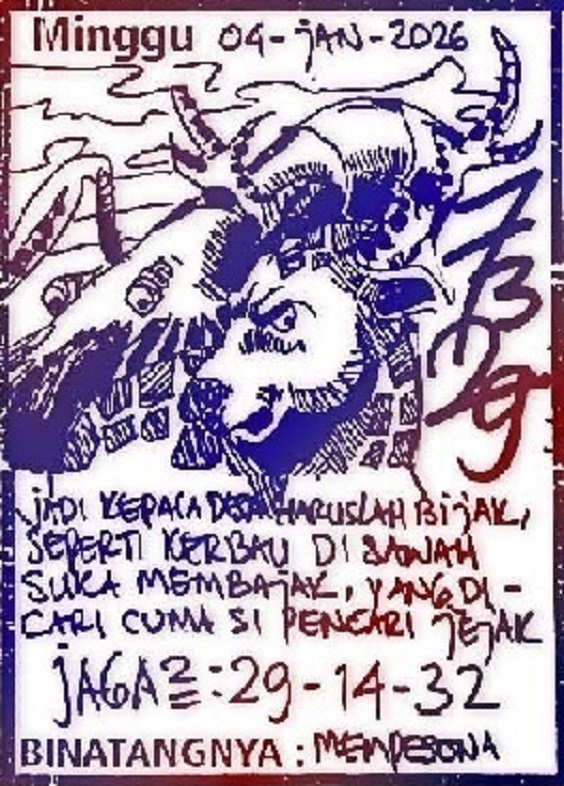 Minggu 04-jAN-2026
7
3
2
9
jADI KEPALA DESA HARUSLAH BijAK,
SEPERTI KERBAU DI SAWAH
SUKA MEMBAjAK, YANG DI-
CARI CUMA SI PENCARI jEjAK
jAGA2=:29-14-32
BINATANGNYA : MEMPESONA